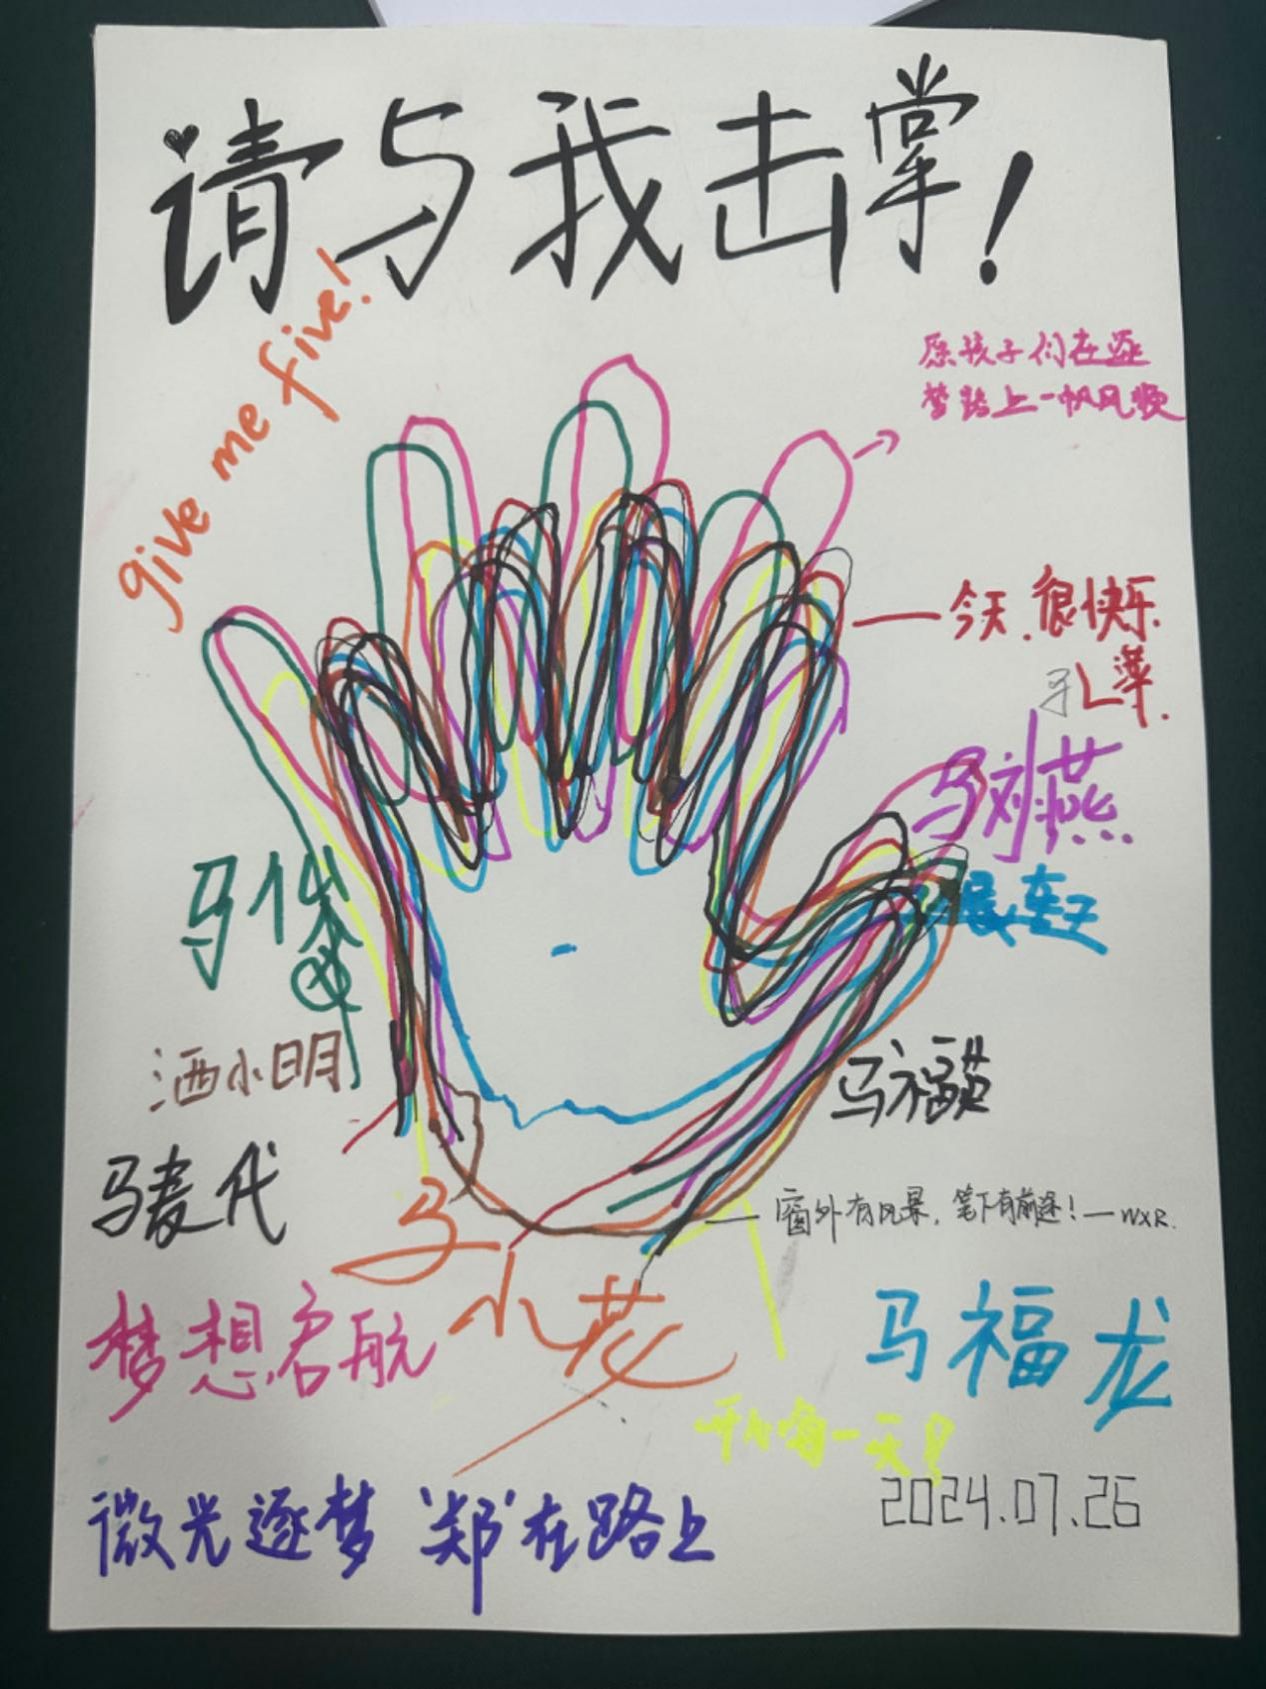 请与我击掌!
give me five!
愿孩子们在逐
梦路上一帆风顺
今天.很快乐
孔萍.
马刘燕.
马福英
洒小明
马麦代
窗外有风景，笔下有前途!—WXR.
马小花
梦想启航
马福龙
开心每一天!
2024.07.26
微光逐梦 "郑"在路上